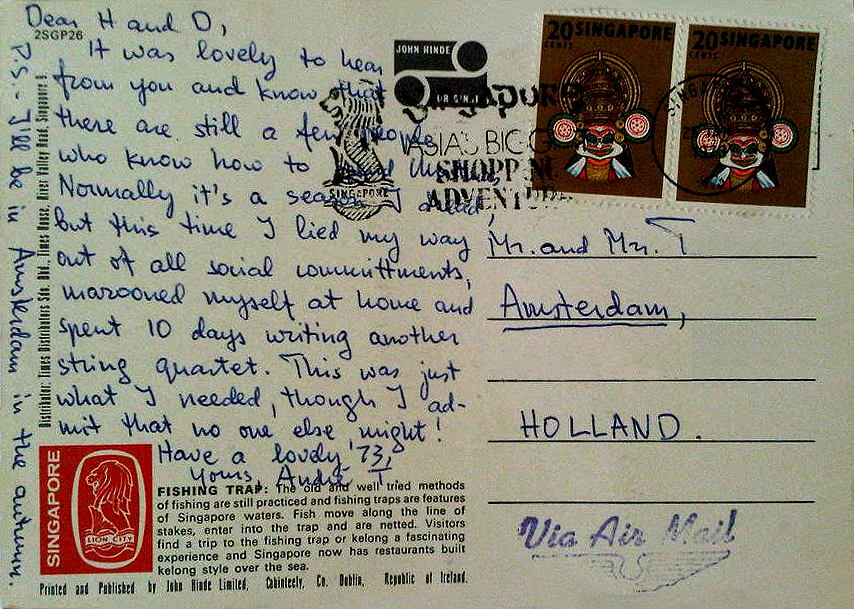 Dear H and D,
2SGP26
It was lovely to hear
from you and know that
there are still a few people
who know how to
Normally it's a season I dread,
but this time I lied my way
out of all social committments,
marooned myself at home and
spent 10 days writing another
string quartet. This was just
what I needed, though I ad-
mit that no one else might!
Have a lovely '73,
Yours, André T
P.S. - I'll be in Amsterdam in the autumn.
Distributor: Times Distributors Sdn. Bhd., Times House, River Valley Road, Singapore 9.
JOHN HINDE
ORIGINAL
Singapore
ASIA'S BIG
SHOPPING
ADVENTURE
SINGAPORE
20 SINGAPORE
CENTS
20 SINGAPORE
CENTS
Mr. and Mrs. T
Amsterdam,
HOLLAND.
Via Air Mail
SINGAPORE
LION CITY
FISHING TRAP: The old and well tried methods
of fishing are still practiced and fishing traps are features
of Singapore waters. Fish move along the line of
stakes, enter into the trap and are netted. Visitors
find a trip to the fishing trap or kelong a fascinating
experience and Singapore now has restaurants built
kelong style over the sea.
Printed and Published by John Hinde Limited, Cabinteely, Co. Dublin, Republic of Ireland.